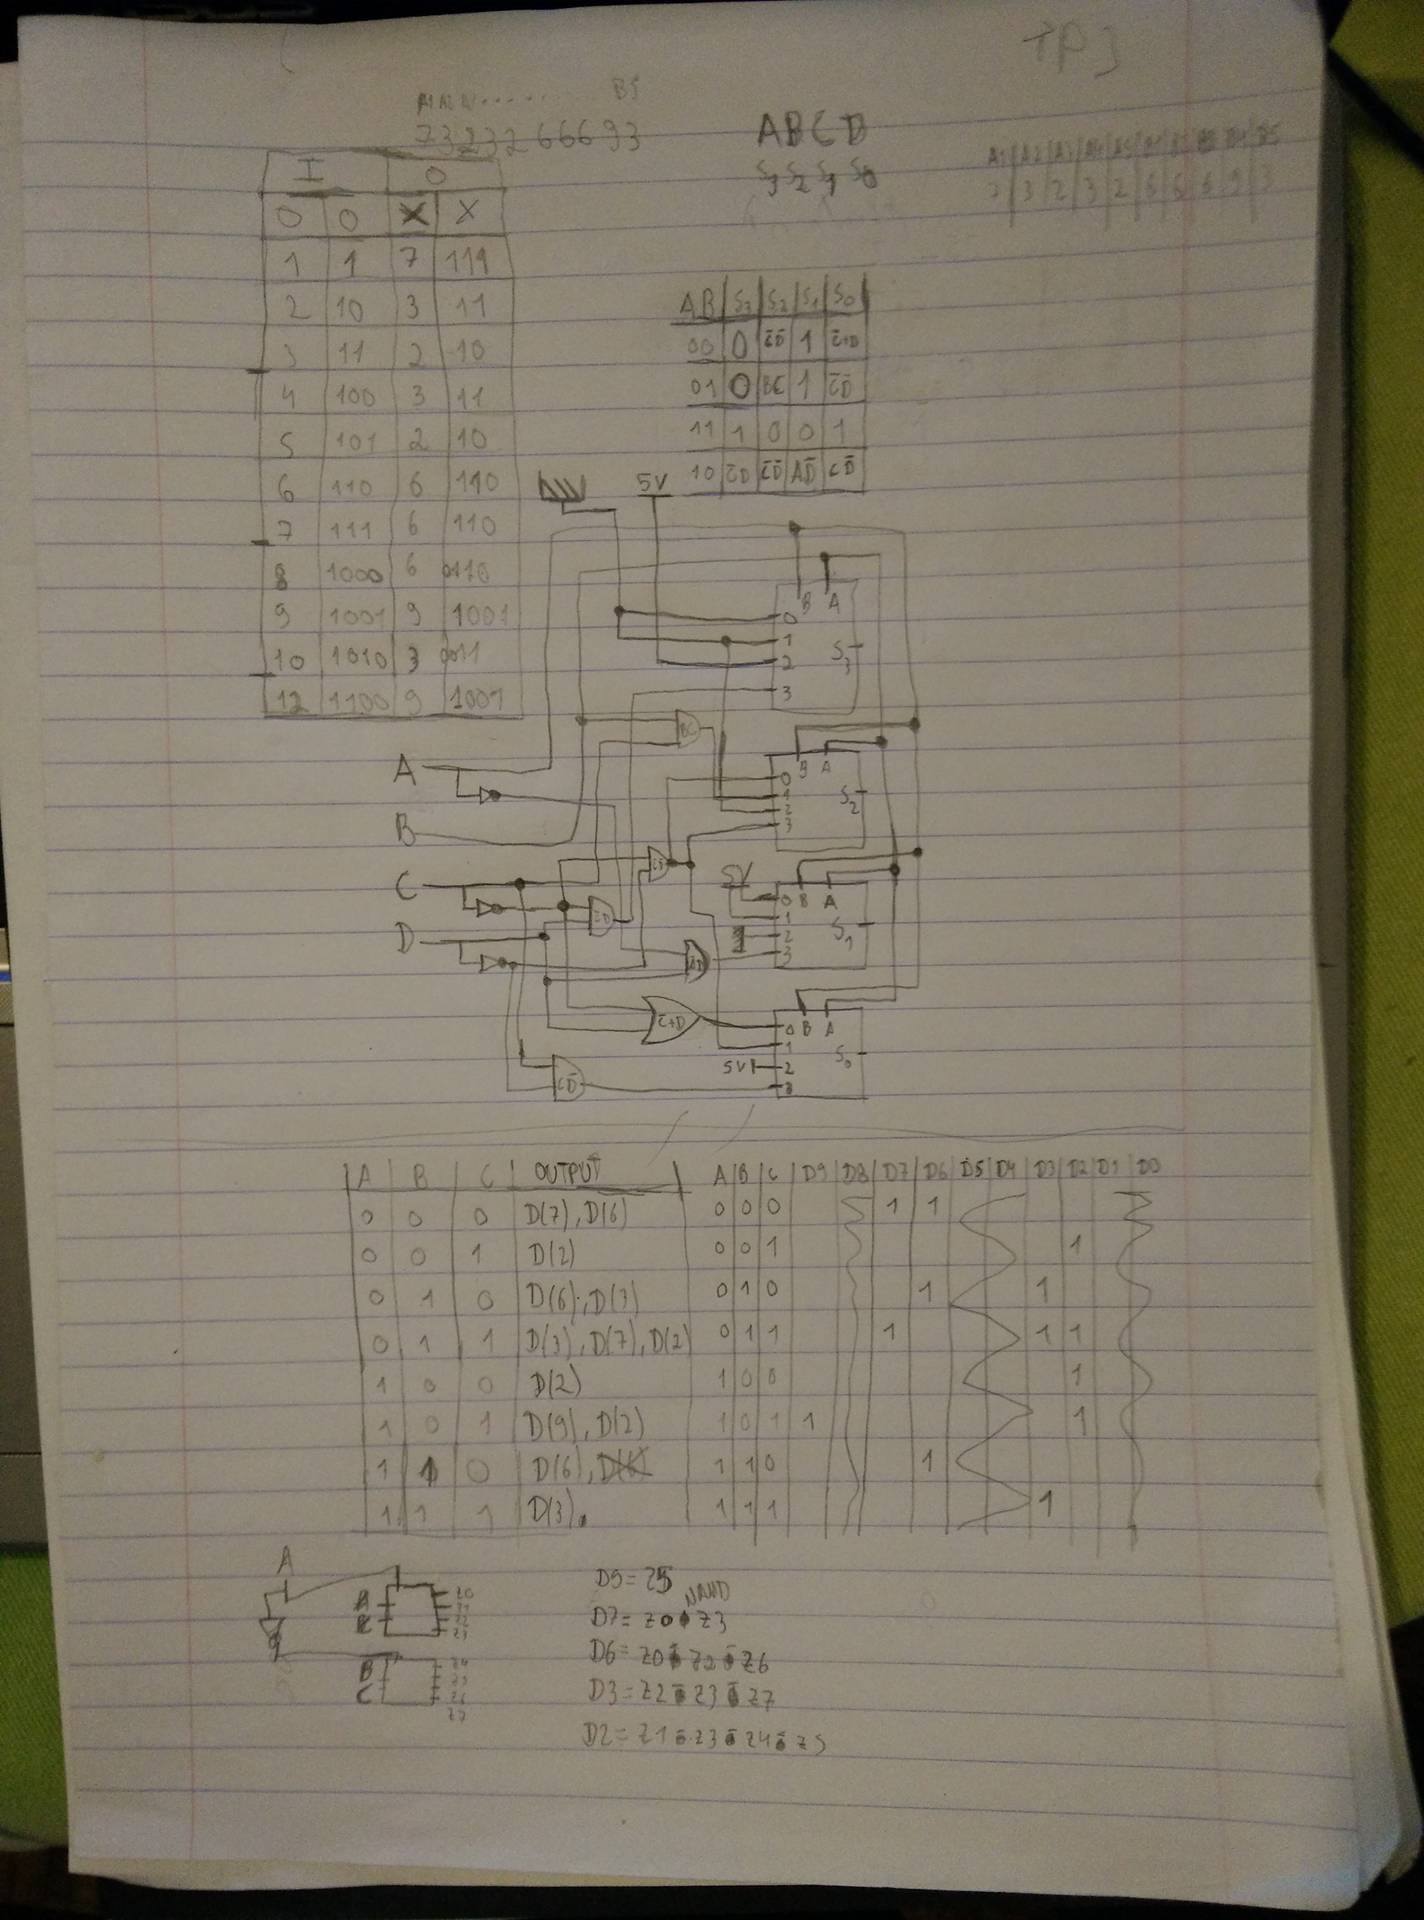 TP3
B5
73232 66693
ABCD
S3 S2 S1 S0
A1 A2 A3 A4 A5
7 3 2 3 2 6 6 6 9 3
I O
0 0 X X
1 1 7 111
2 10 3 11
3 11 2 10
4 100 3 11
5 101 2 10
6 110 6 110
7 111 6 110
8 1000 6 0110
9 1001 9 1001
10 1010 3 0011
12 1100 9 1001
AB S3 S2 S1 S0
00 0 C̄D̄ 1 C̄+D
01 0 BC 1 C̄D̄
11 1 0 0 1
10 C̄D C̄D̄ AD̄ CD̄
5V
B A
0
1
2
3
S3
BC
A
B A
0
1
2
3
S2
B
C
5V
B A
0
1
2
3
S1
D
C̄+D
B A
0
1
5V 2
3
S0
CD̄
A B C OUTPUT
0 0 0 D(7), D(6)
0 0 1 D(2)
0 1 0 D(6), D(3)
0 1 1 D(3), D(7), D(2)
1 0 0 D(2)
1 0 1 D(9), D(2)
1 1 0 D(6), D(6)
1 1 1 D(3).
A B C D9 D8 D7 D6 D5 D4 D3 D2 D1 D0
0 0 0 1 1
0 0 1 1
0 1 0 1 1
0 1 1 1 1 1
1 0 0 1
1 0 1 1 1
1 1 0 1
1 1 1 1
A
Z0
Z1
Z2
Z3
B Z4
C Z5
Z6
Z7
D9 = Z5
NAND
D7 = Z0 Z3
D6 = Z0 Z2 Z6
D3 = Z2 Z3 Z7
D2 = Z1 Z3 Z4 Z5